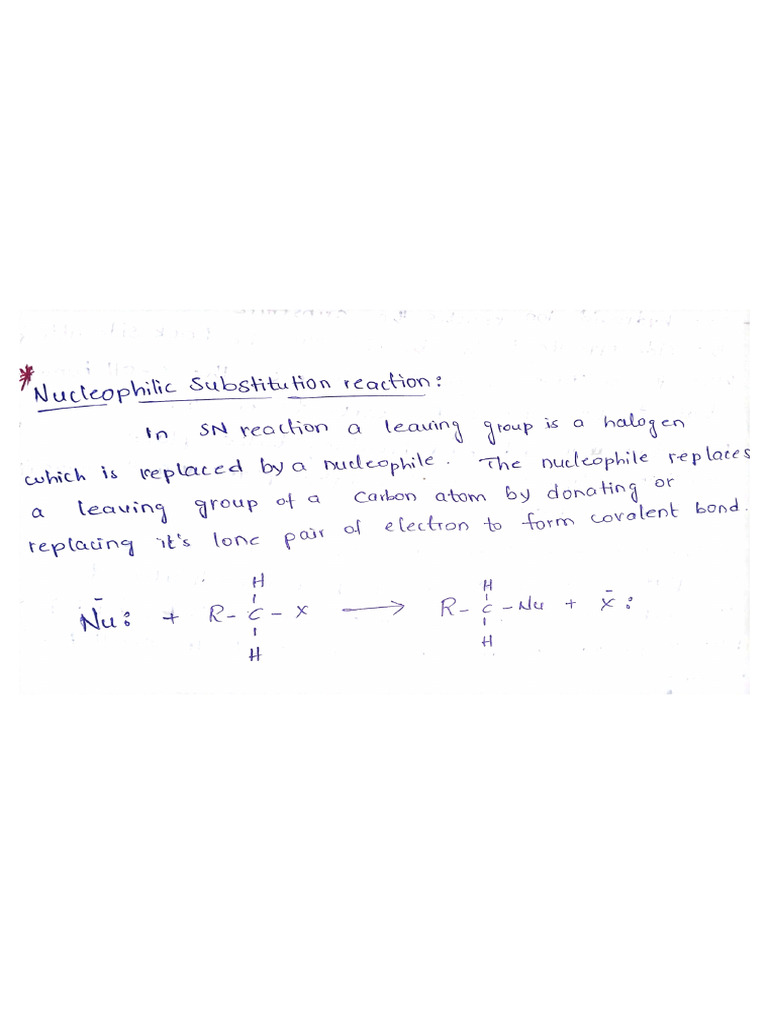 *Nucleophilic Substitution reaction:
In SN reaction a leaving group is a halogen
which is replaced by a nucleophile. The nucleophile replaces
a leaving group of a carbon atom by donating or
replacing it's lone pair of electron to form covalent bond.
H H
N̄u: + R-C-X ⟶ R-C-Nu + X̄:
H H